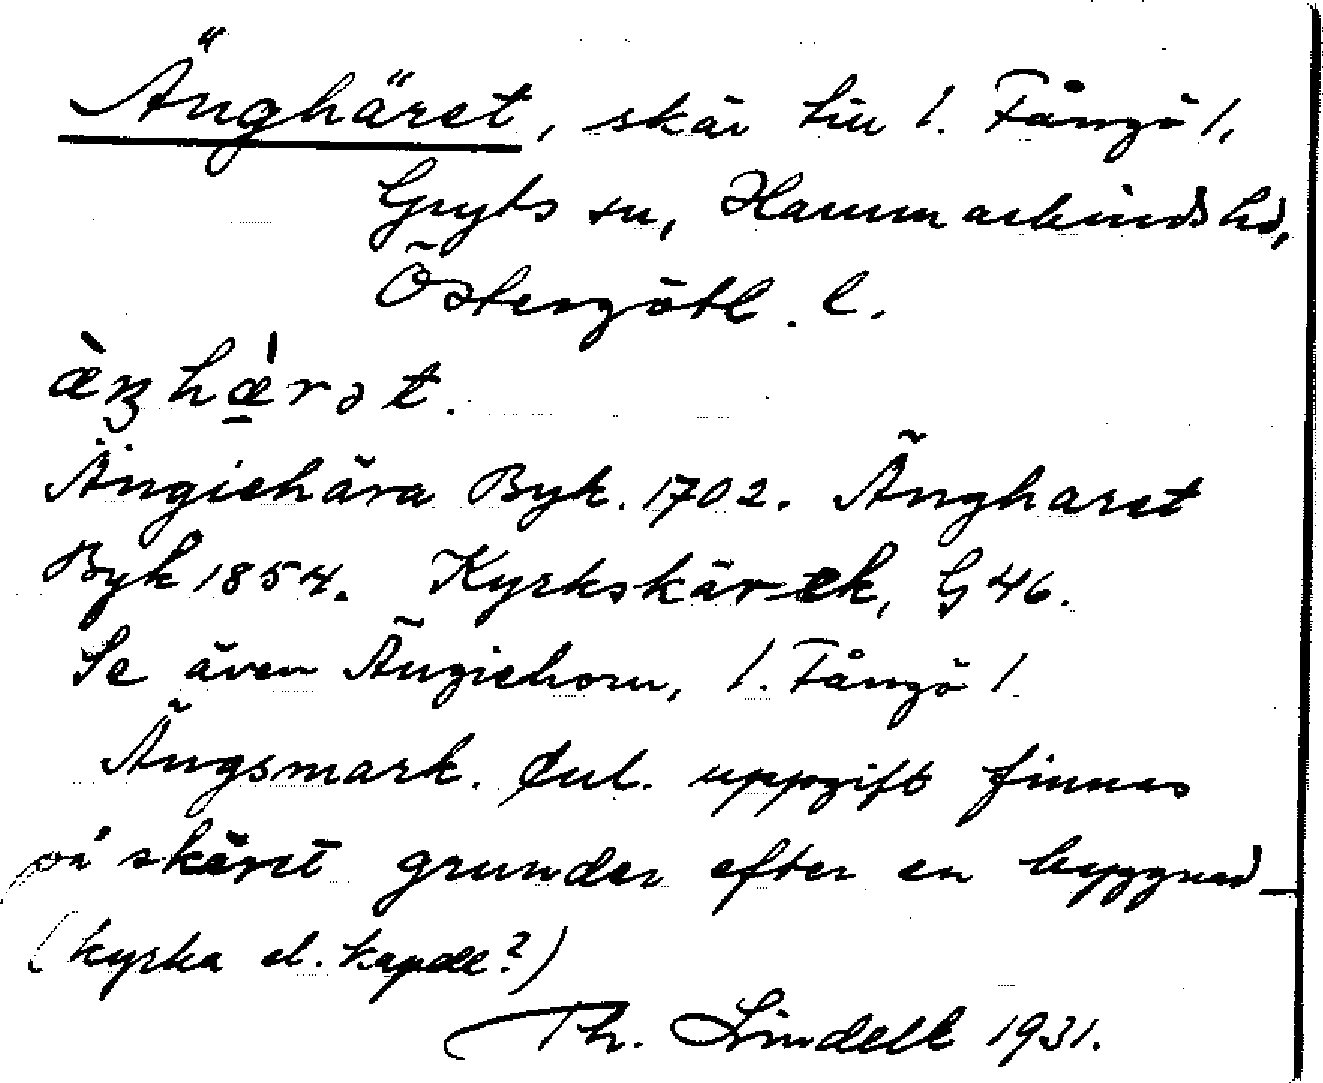 Änghäret, skär till 1. Fångö 1,
Gryts sn, Hammarkinds hd,
Östergötl. l.
ǽŋhæ̀rət.
Ängiehära Byk. 1702. Ängharet
Byk 1854. Kyrkskär ek, G 46.
Se även Ängiehorn, 1. Fångö 1.
Ängsmark. Enl. uppgift finnas
på skäret grunder efter en byggnad
(kyrka el. kapell?)
Th. Lindell 1931.